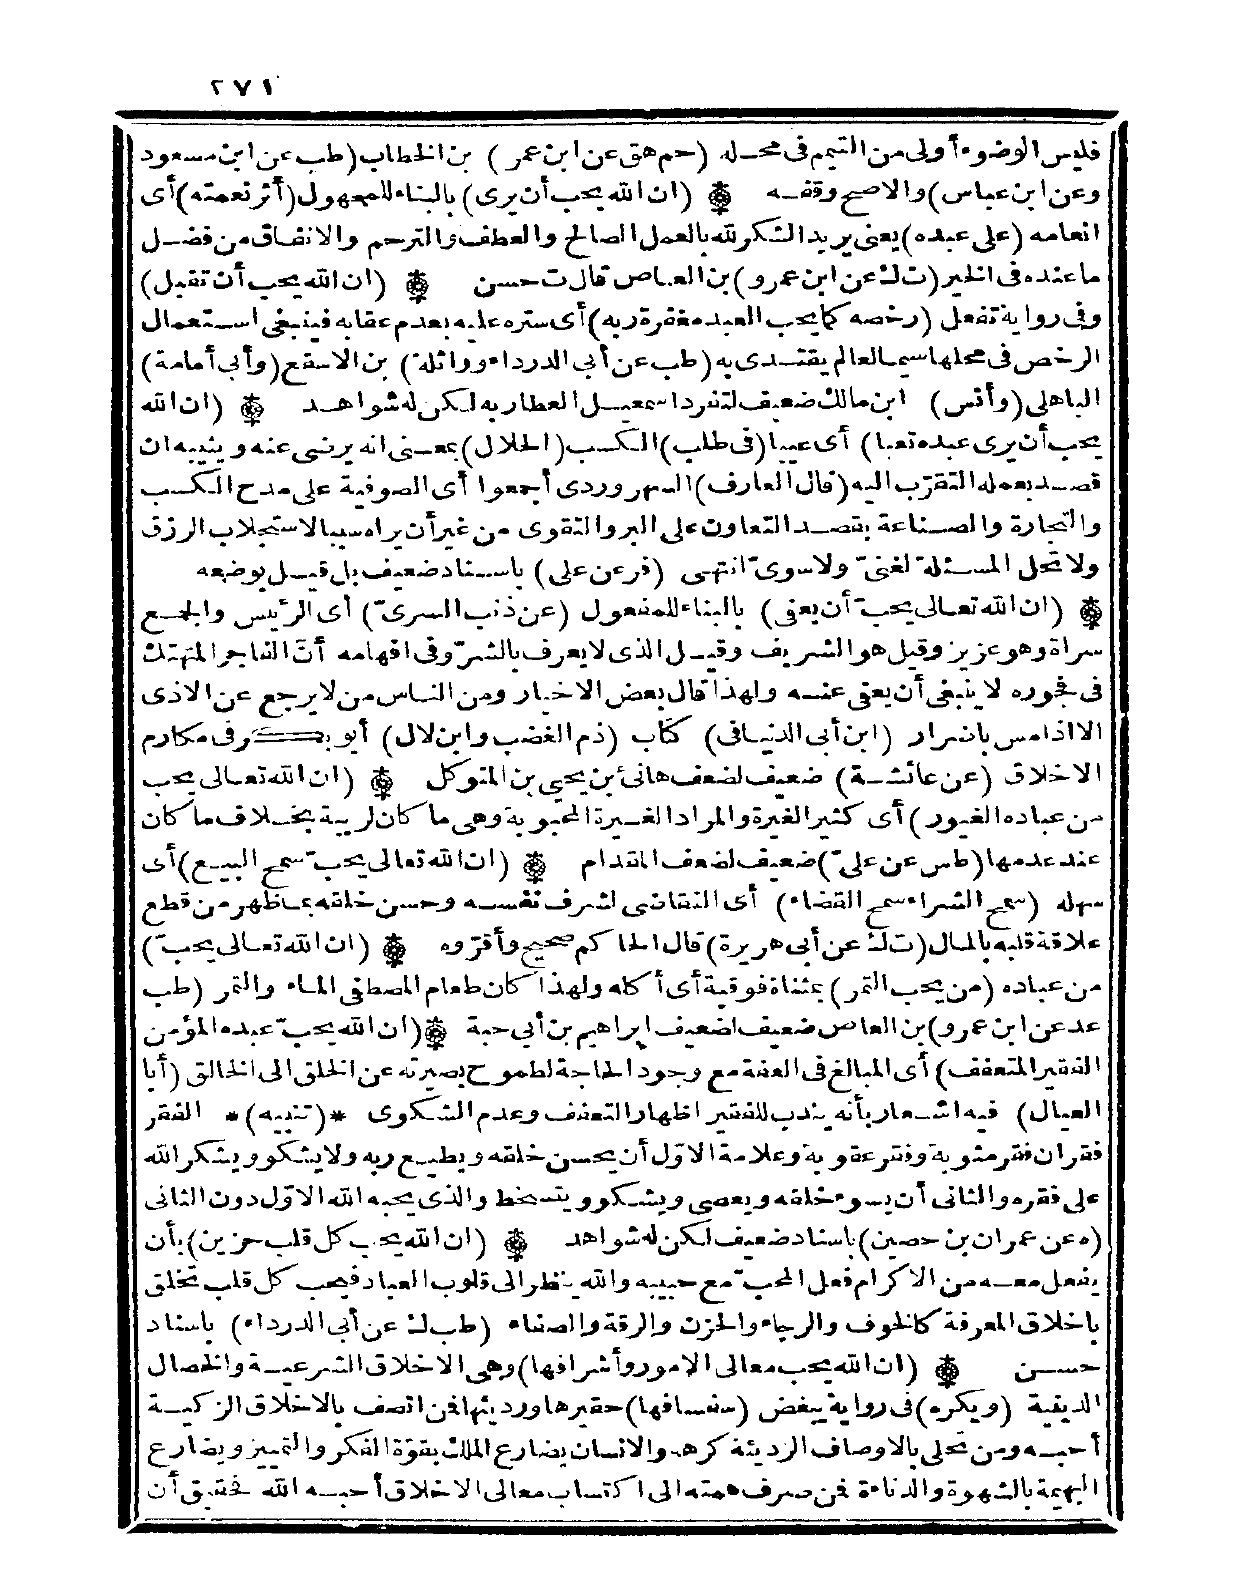 ٢٧١
فليس الوضوء أولى من التيمم فى محله (حم هق عن ابن عمر) بن الخطاب (طب عن ابن مسعود
وعن ابن عباس) والاصح وقفه (ان الله يحب أن يرى) بالبناء للمجهول (أثر نعمته) أى
انعامه (على عبده) يعنى يريد الشكر لله بالعمل الصالح والعطف والترحم والانفاق من فضل
ما عنده فى الخير (ت ك عن ابن عمرو) بن العاص قال ت حسن (ان الله يحب أن تقبل)
وفى رواية تفعل (رخصه كما يحب العبد مغفرة ربه) أى ستره عليه بعدم عقابه فينبغى استعمال
الرخص فى محلها سيما العالم يقتدى به (طب عن أبى الدرداء وواثلة) بن الاسقع (وأبى أمامة)
الباهلى (وأنس) ابن مالك ضعيف لتفرد اسمعيل العطار به لكن له شواهد (ان الله
يحب أن يرى عبده تعبا) أى عييا (فى طلب) الكسب (الحلال) بمعنى انه يرضى عنه ويثيبه ان
قصد بعمله التقرّب اليه (قال العارف) السهروردى أجمعوا أى الصوفية على مدح الكسب
والتجارة والصناعة بقصد التعاون على البر والتقوى من غير أن يراه سببا لاستجلاب الرزق
ولا تحل المسئلة لغنىّ ولا سوىّ انتهى (فر عن على) باسناد ضعيف بل قيل بوضعه
(ان الله تعالى يحبّ أن يعفى) بالبناء للمفعول (عن ذنب السرىّ) أى الرئيس والجمع
سراة وهو عزيز وقيل هو الشريف وقيل الذى لا يعرف بالشرّ وفى افهامه أنّ الفاجر المتهتك
فى فجوره لا ينبغى أن يعفى عنه ولهذا قال بعض الاخيار ومن الناس من لا يرجع عن الاذى
الا اذا مس باضرار (ابن أبى الدنيا فى) كتاب (ذم الغضب وابن لال) أبو بكر فى مكارم
الاخلاق (عن عائشة) ضعيف لضعف هانئ بن يحيى بن المتوكل (ان الله تعالى يحب
من عباده الغيور) أى كثير الغيرة والمراد الغيرة المحبوبة وهى ما كان لريبة بخلاف ما كان
عند عدمها (طس عن علىّ) ضعيف لضعف المقدام (ان الله تعالى يحبّ سمح البيع) أى
سهله (سمح الشراء سمح القضاء) أى التقاضى لشرف نفسه وحسن خلقه بما ظهر من قطع
علاقة قلبه بالمال (ت ك عن أبى هريرة) قال الحاكم صحيح وأقرّوه (ان الله تعالى يحبّ)
من عباده (من يحب التمر) بمثناة فوقية أى أكله ولهذا كان طعام المصطفى الماء والتمر (طب
عد عن ابن عمرو) بن العاص ضعيف لضعيف ابراهيم بن أبى حبة (ان الله يحبّ عبده المؤمن
الفقير المتعفف) أى المبالغ فى العفة مع وجود الحاجة لطموح بصيرته عن الخلق الى الخالق (أبا
العيال) فيه اشعار بأنه يندب للفقير اظهار التعفف وعدم الشكوى *(تنبيه)* الفقر
فقران فقر مثوبة وفقر عقوبة وعلامة الاوّل أن يحسن خلقه ويطيع ربه ولا يشكو ويشكر الله
على فقره والثانى أن يسوء خلقه ويعصى ويشكو ويتسخط والذى يحبه الله الاوّل دون الثانى
(ه عن عمران بن حصين) باسناد ضعيف لكن له شواهد (ان الله يحب كل قلب حزين) بأن
يفعل معه من الاكرام فعل المحبّ مع حبيبه والله ينظر الى قلوب العباد فيحب كل قلب تخلق
باخلاق المعرفة كالخوف والرجاء والحزن والرقة والصفاء (طب ك عن أبى الدرداء) باسناد
حسن (ان الله يحب معالى الامور وأشرافها) وهى الاخلاق الشرعية والخصال
الدينية (ويكره) فى رواية يبغض (سفسافها) حقيرها ورديئها فمن اتصف بالاخلاق الزكية
أحبه ومن تحلى بالاوصاف الرديئة كرهه والانسان يضارع الملك بقوّة الفكر والتمييز ويضارع
البهيمة بالشهوة والدناءة فمن صرف همته الى اكتساب معالى الاخلاق أحبه الله فحقيق أن